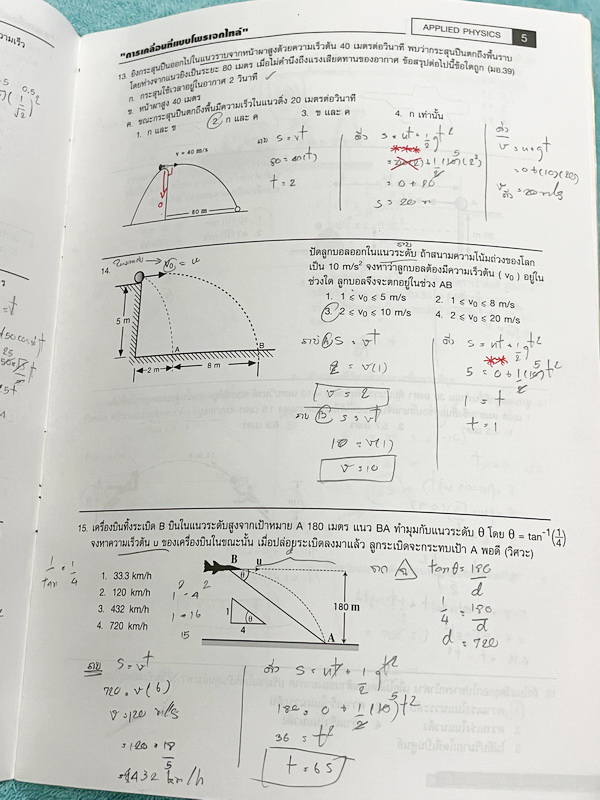 "การเคลื่อนที่แบบโพรเจกไทล์"
APPLIED PHYSICS 5
13. ยิงกระสุนปืนออกไปในแนวราบจากหน้าผาสูงด้วยความเร็วต้น 40 เมตรต่อวินาที พบว่ากระสุนปืนตกถึงพื้นราบ
โดยห่างจากแนวยิงเป็นระยะ 80 เมตร เมื่อไม่คำนึงถึงแรงเสียดทานของอากาศ ข้อสรุปต่อไปนี้ข้อใดถูก (มอ.39)
ก. กระสุนใช้เวลาอยู่ในอากาศ 2 วินาที
ข. หน้าผาสูง 40 เมตร
ค. ขณะกระสุนปืนตกถึงพื้นมีความเร็วในแนวดิ่ง 20 เมตรต่อวินาที
1. ก และ ข 2. ก และ ค 3. ข และ ค 4. ก เท่านั้น
v = 40 m/s
80 m
ราบ S = vt
80 = 40(t)
t = 2
ดิ่ง S = ut + 1/2 gt²
= 0 + 20
S = 20 m
ดิ่ง
v = u + gt
= 0 + (10)(2)
v ดิ่ง = 20 m/s
14.
v₀ = u
5 m
A
B
2 m
8 m
ปัดลูกบอลออกในแนวระดับ ถ้าสนามความโน้มถ่วงของโลก
เป็น 10 m/s² จงหาว่าลูกบอลต้องมีความเร็วต้น ( v₀ ) อยู่ใน
ช่วงใด ลูกบอลจึงจะตกอยู่ในช่วง AB
1. 1 ≤ v₀ ≤ 5 m/s 2. 1 ≤ v₀ ≤ 8 m/s
3. 2 ≤ v₀ ≤ 10 m/s 4. 2 ≤ v₀ ≤ 20 m/s
ราบ A S = vt
2 = v(1)
v = 2
ราบ B S = vt
10 = v(1)
v = 10
ดิ่ง S = ut + 1/2 gt²
5 = 0 + 1/2 (10) t²
1 = t
t = 1
15. เครื่องบินทิ้งระเบิด B บินในแนวระดับสูงจากเป้าหมาย A 180 เมตร แนว BA ทำมุมกับแนวระดับ θ โดย θ = tan⁻¹(1/4)
จงหาความเร็วต้น u ของเครื่องบินในขณะนั้น เมื่อปล่อยระเบิดลงมาแล้ว ลูกระเบิดจะกระทบเป้า A พอดี (วิศวะ)
1. 33.3 km/h
2. 120 km/h
3. 432 km/h
4. 720 km/h
B
u
180 m
1
θ
4
A
จาก
tan θ = 180/d
1/4 = 180/d
d = 720
ราบ S = vt
720 = v(6)
v = 120 m/s
= 120 × 18/5
= 432 km/h
ดิ่ง S = ut + 1/2 gt²
180 = 0 + 1/2 (10) t²
36 = t²
t = 6 s